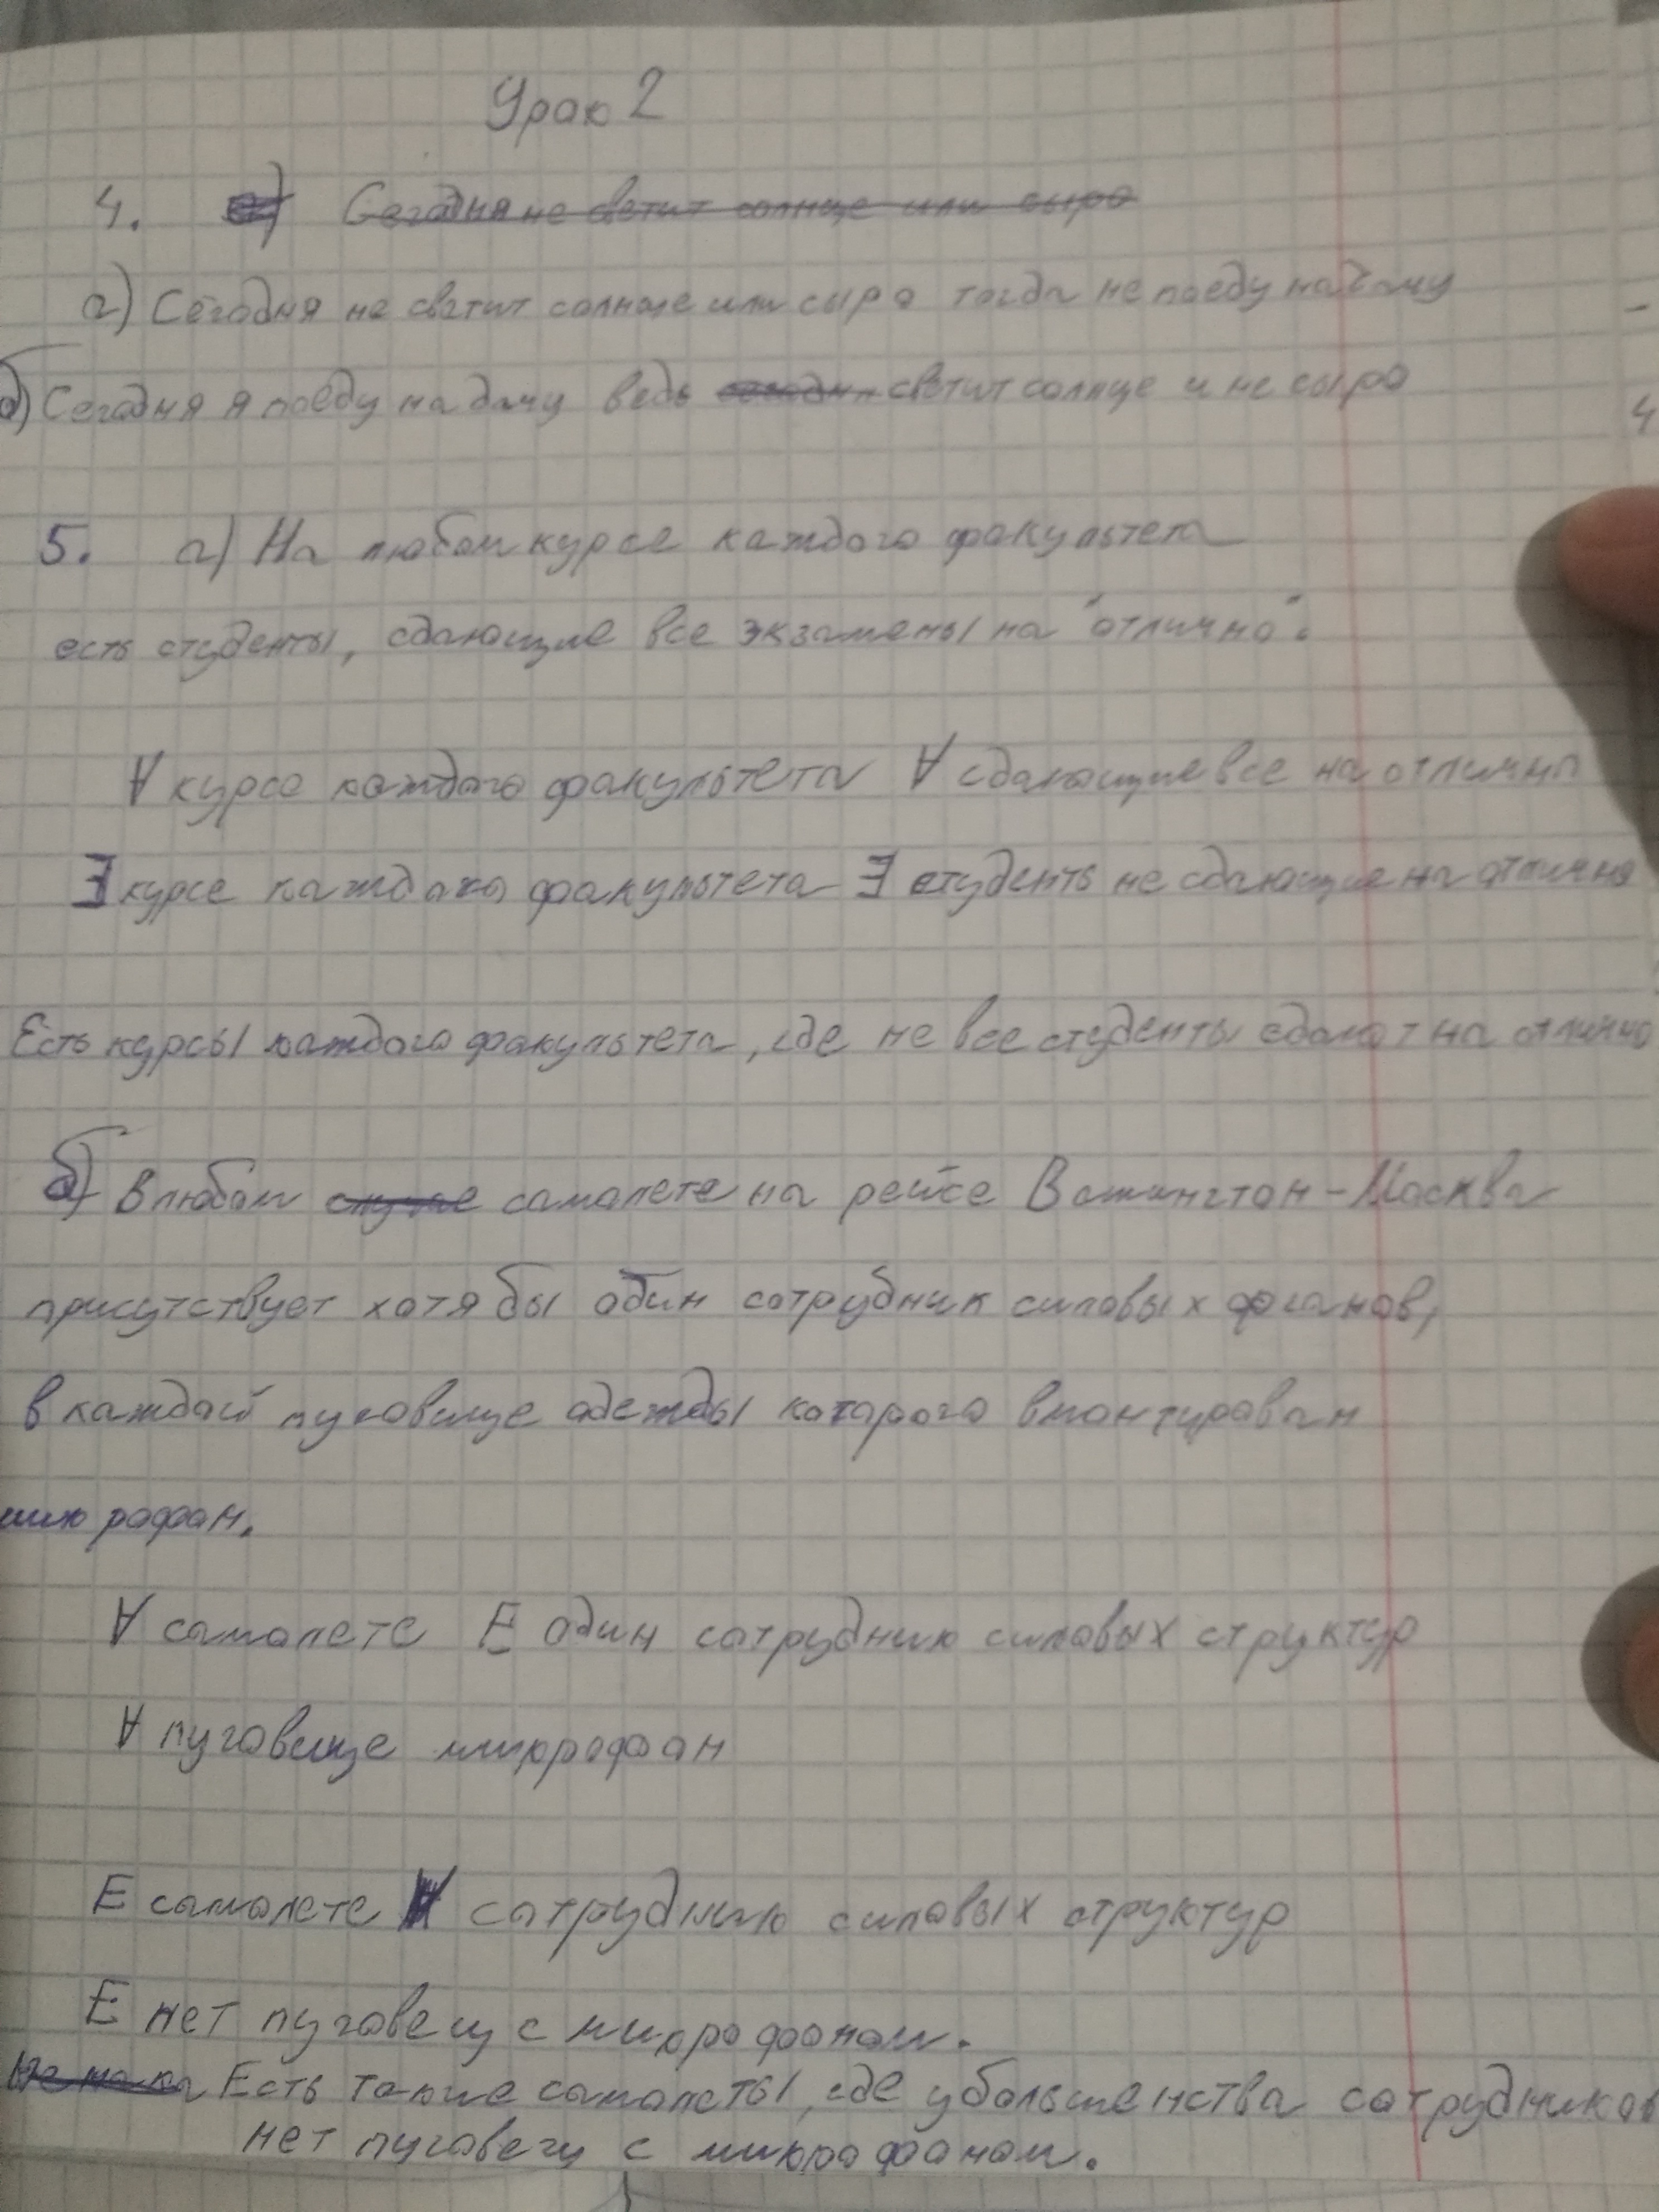 Урок 2
4. а) Сегодня не светит солнце или сыро
а) Сегодня не светит солнце или сыро тогда не поеду на дачу
б) Сегодня я поеду на дачу ведь сегодня светит солнце и не сыро
4
5. а) На любом курсе каждого факультета
есть студенты, сдающие все экзамены на "отлично".
∀ курсе каждого факультета ∀ сдающие все на отлично
∃ курсе каждого факультета ∃ студенть не сдающие на отлично
Есть курсы каждого факультета, где не все студенты сдают на отлично
б) В любом случае самолете на рейсе Вашингтон-Москва
присутствует хотя бы один сотрудник силовых органов,
в каждой пуговице одежды которого вмонтирован
микрофон.
∀ самолете E один сотрудник силовых структур
∀ пуговице микрофон
E самолете ∀ сотрудник силовых структур
E нет пуговец с микрофоном.
Есть такие самолеты, где у большенства сотрудников
нет пуговец с микрофоном.